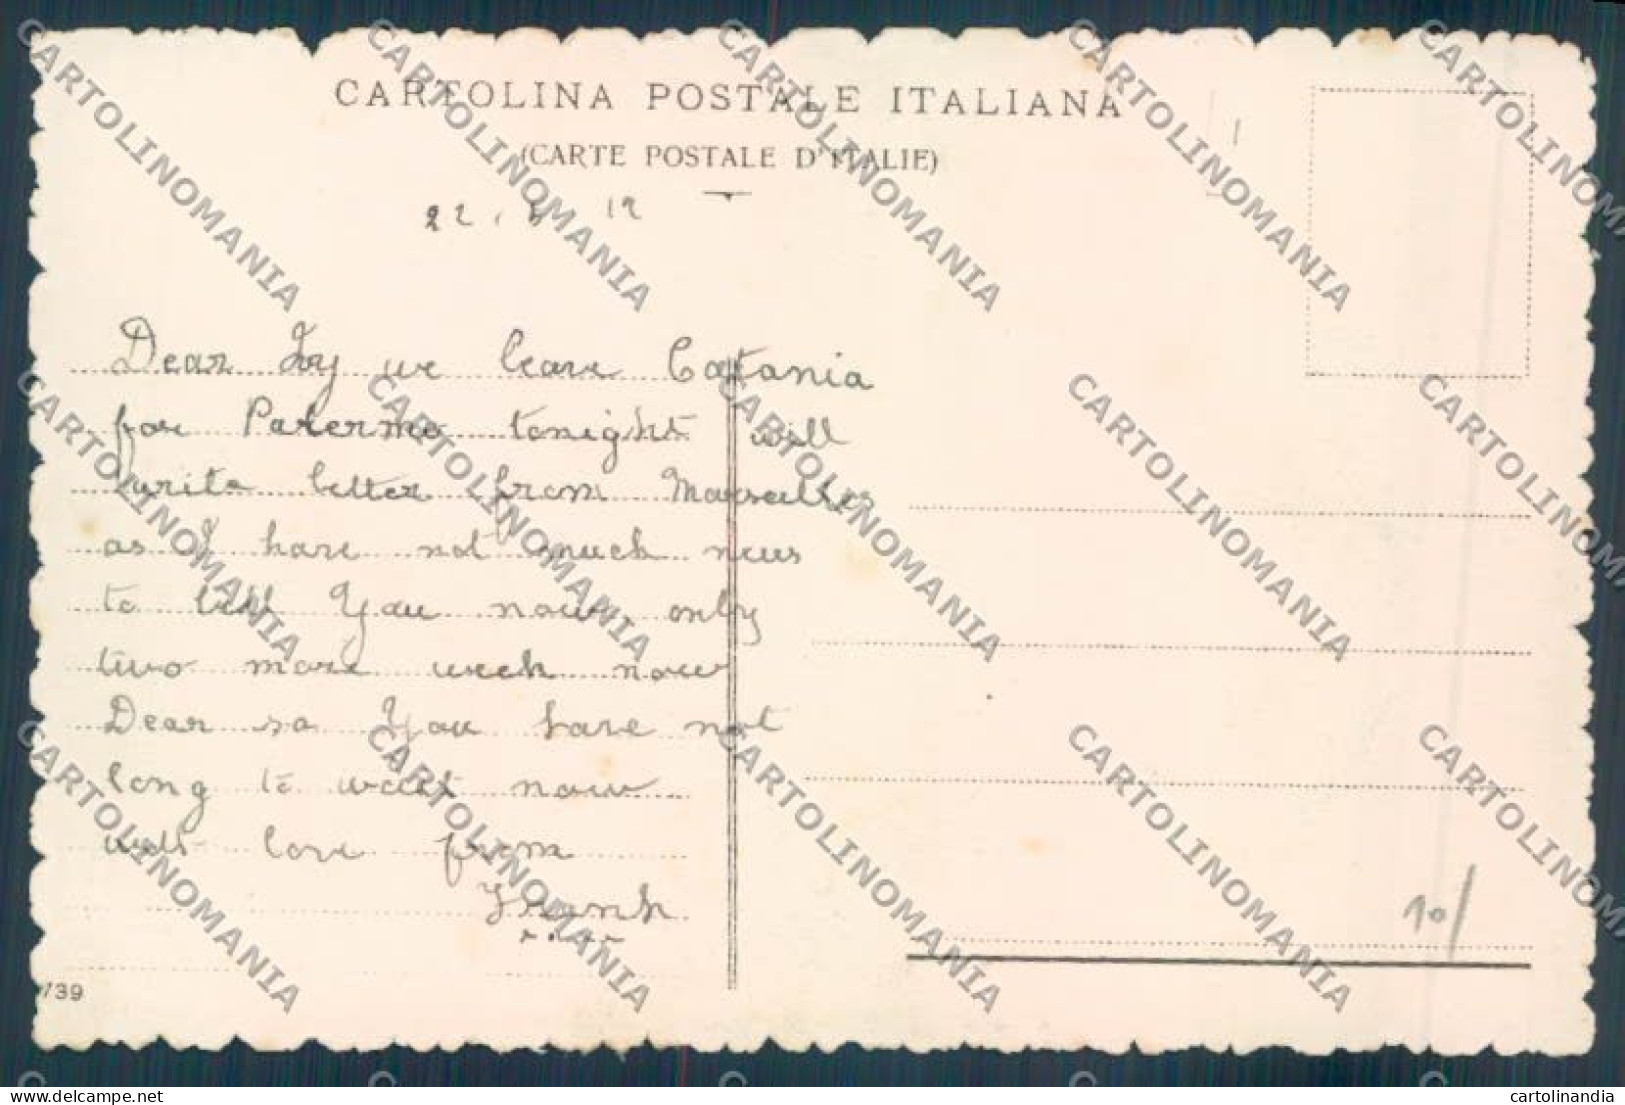 CARTOLINA POSTALE ITALIANA
(CARTE POSTALE D'ITALIE)
22. 19
Dear we leave Catania
for Palermo tonight will
write letter from Marseilles
as I have not much news
to tell You now, only
two more week now
Dear so You have not
long to wait now
with love from
Frank
739
10/
CARTOLINOMANIA
cartolinandia